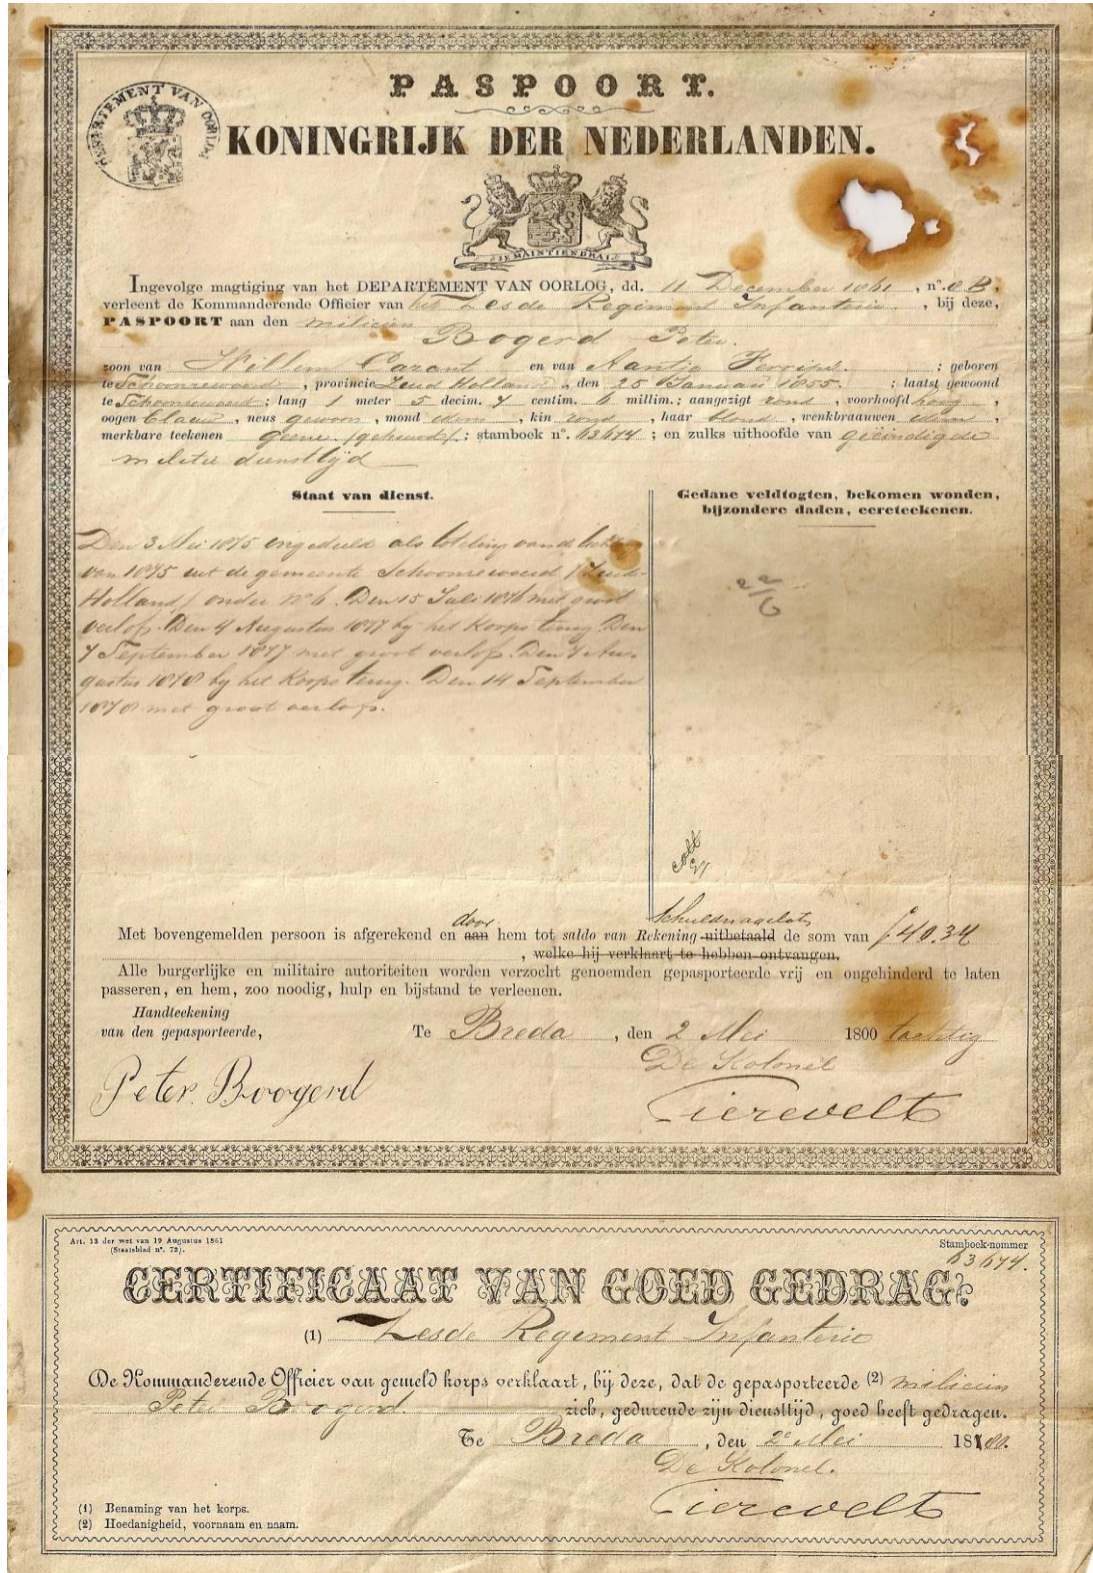 DEPARTEMENT VAN OORLOG
PASPOORT.
KONINGRIJK DER NEDERLANDEN.
JE MAINTIENDRAI
Ingevolge magtiging van het DEPARTEMENT VAN OORLOG, dd. 11 December 1861, nº. 8 B,
verleent de Kommanderende Officier van het Zesde Regiment Infanterie, bij deze,
PASPOORT aan den milicien
Bogerd Peter.
zoon van Willem en van Aantje ; geboren
te Schoonrewoerd, provincie Zuid Holland, den 25 Januari 1855. ; laatst gewoond
te Schoonrewoerd; lang 1 meter 5 decim. 7 centim. 6 millim.; aangezigt rond, voorhoofd hoog,
oogen blauw, neus gewoon, mond idem, kin rond, haar blond, wenkbraauwen idem,
merkbare teekenen geene ; stamboek nº. 63674; en zulks uithoofde van geëindigde
militie diensttijd
Staat van dienst.
Gedane veldtogten, bekomen wonden,
bijzondere daden, eereteekenen.
Den 3 Mei 1875 ingedeeld als loteling van de
van 1875 uit de gemeente Schoonrewoerd / Zuid-
Holland / onder nº 6. Den 15 Juli 1876 met groot
verlof. Den 4 Augustus 1877 bij het Korps terug. Den
7 September 1877 met groot verlof. Den 7 Au-
gustus 1878 bij het Korps terug. Den 14 September
1878 met groot verlof.
door
Schuldnagelaten
Met bovengemelden persoon is afgerekend en aan hem tot saldo van Rekening uitbetaald de som van ƒ40.34
, welke hij verklaart te hebben ontvangen.
Alle burgerlijke en militaire autoriteiten worden verzocht genoemden gepasporteerde vrij en ongehinderd te laten
passeren, en hem, zoo noodig, hulp en bijstand te verleenen.
Handteekening
van den gepasporteerde,
Te Breda, den 2 Mei 1800 tachtig
De Kolonel
Peter Boogerd
Art. 13 der wet van 19 Augustus 1861
(Staatsblad nº. 72).
Stamboek-nommer
63674.
CERTIFICAAT VAN GOED GEDRAG.
(1) Zesde Regement Infanterie
De Kommanderende Officier van gemeld korps verklaart, bij deze, dat de gepasporteerde (2) milicien
Peter Boogerd. zich, gedurende zijn diensttijd, goed heeft gedragen.
Te Breda, den 2e Mei 1880.
De Kolonel.
(1) Benaming van het korps.
(2) Hoedanigheid, voornaam en naam.